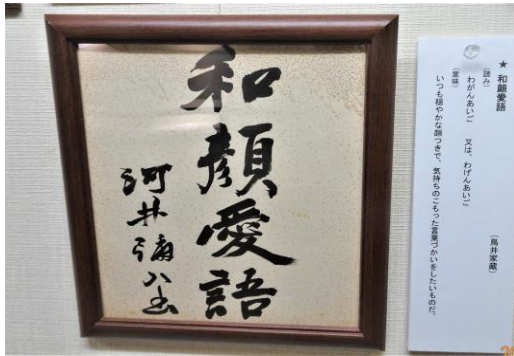 和顔愛語
河井彌八書
★ 和顔愛語
(鳥井家蔵)
(読み)
わがんあいご 又は、わげんあいご
(意味)
いつも穏やかな顔つきで、気持ちのこもった言葉づかいをしたいものだ。